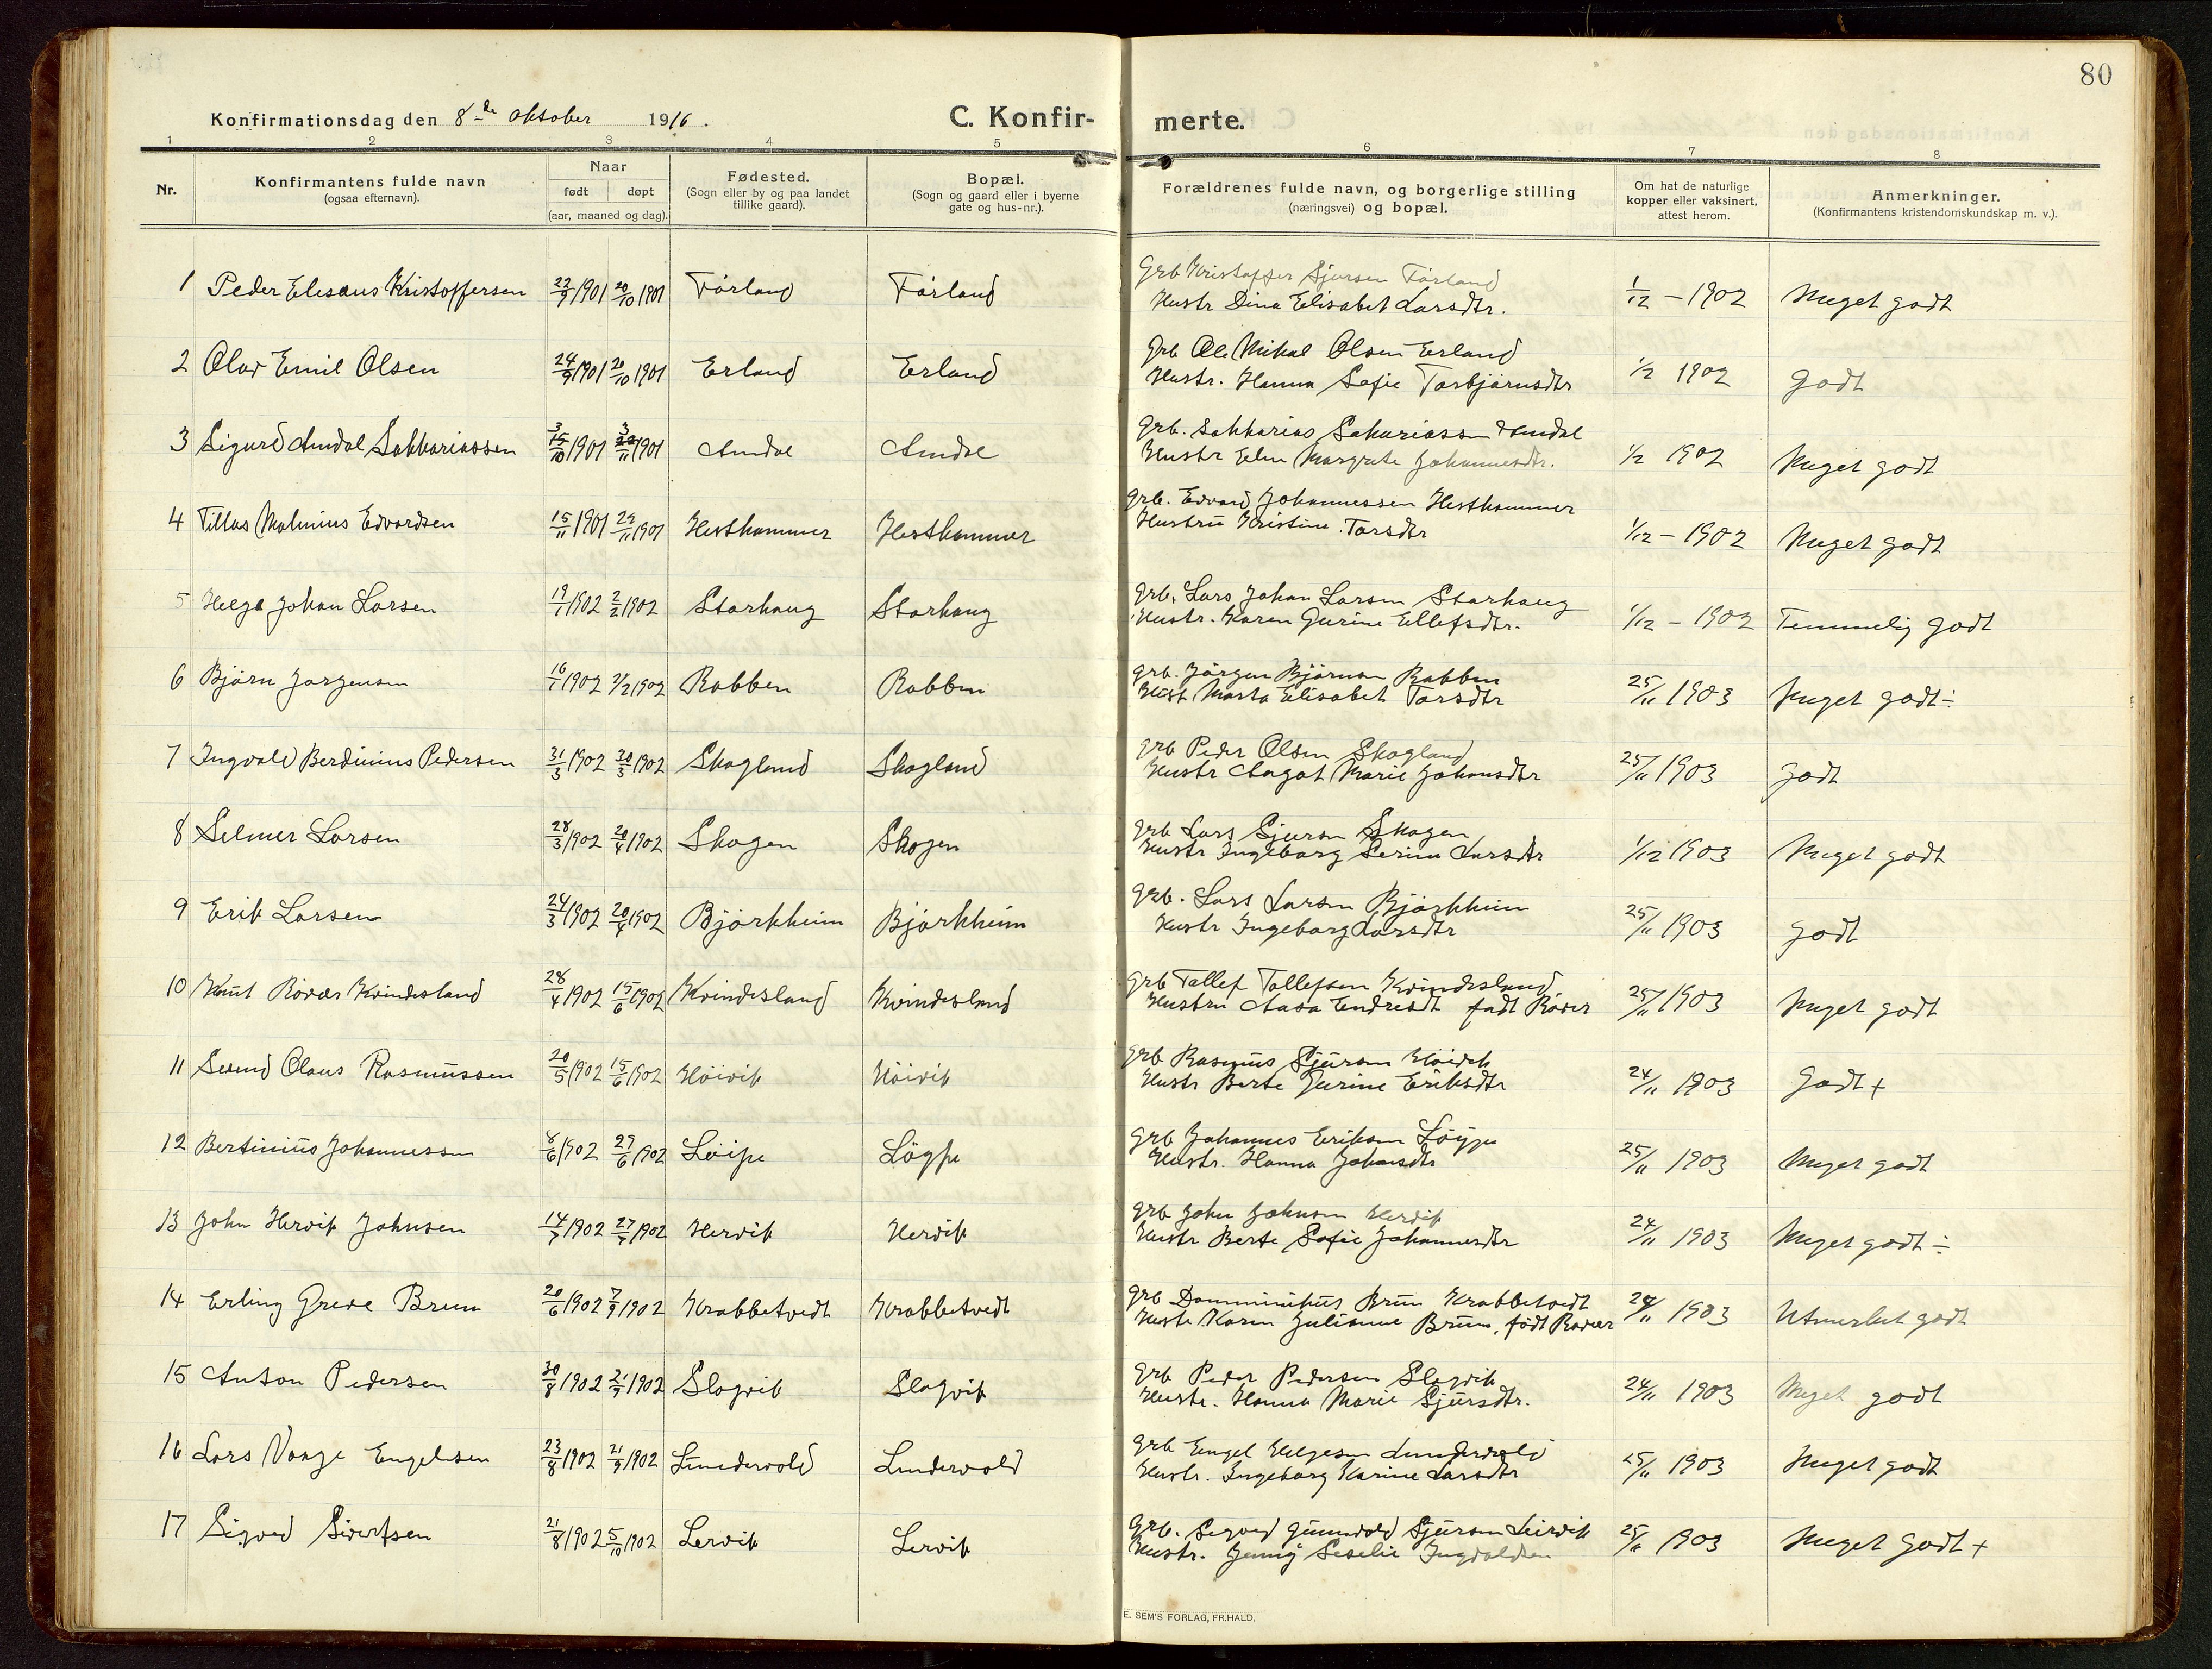 80
Konfirmationsdag den 8de Oktober 1916.
C. Konfirmerte.
1 2 3 4 5 6 7 8
Nr.
Konfirmantens fulde navn
(ogsaa efternavn).
Naar
født døpt
(aar, maaned og dag).
Fødested.
(Sogn eller by og paa landet
tillike gaard).
Bopæl.
(Sogn og gaard eller i byerne
gate og hus-nr.).
Forældrenes fulde navn, og borgerlige stilling
(næringsvei) og bopæl.
Om hat de naturlige
kopper eller vaksinert,
attest herom.
Anmerkninger.
(Konfirmantens kristendomskundskap m. v.).
Grb Kristoffer Sjursen Førland
1 Peder Eliseus Kristoffersen 22/9 1901 20/10 1901 Førland Førland Hustr Dina Elisabet Larsdtr. 1/12 - 1902 Meget godt
Grb Ole Mikal Olsen Erland
2 Olav Emil Olsen 24/9 1901 20/10 1901 Erland Erland Hustr. Hanna Sofie Torbjørnsdtr 1/2 1902 Godt
Grb. Sakkarias Sakariassen Amdal
3 Sigurd Amdal Sakkariassen 1901 1901 Amdal Amdal Hustr Elen Margrete Johannesdtr. 1/2 1902 Meget godt
Grb. Edvard Johannessen Hesthammer
4 Tillas Malinius Edvardsen 15/11 1901 24/11 1901 Hesthammer Hesthammer Hustru Kristine Torsdtr 1/12 - 1902 Meget godt
Grb. Lars Johan Larsen Storhaug
5 Helge Johan Larsen 19/1 1902 2/2 1902 Storhaug Storhaug Hustr. Karen Gurine Ellefsdtr. 1/12 - 1902 Temmelig godt
Grb. Jørgen Bjørnsen Robben
6 Bjørn Jørgensen 16/1 1902 2/2 1902 Robben Robben Hust Marta Elisabet Torsdtr 25/11 1903 Meget godt ÷
Grb Peder Olsen Skogland
7 Ingvald Berdinius Pedersen 31/3 1902 30/3 1902 Skogland Skogland Hustr Aagot Marie Johansdtr 25/11 1903 Godt
Grb Lars Sjursen Skogen
8 Selmer Larsen 28/3 1902 20/4 1902 Skogen Skogen Hustr Ingeborg Serine Larsdtr 1/12 1903 Meget godt
Grb. Lars Larsen Bjørkheim
9 Erik Larsen 24/3 1902 20/4 1902 Bjørkheim Bjørkheim Hustr Ingeborg Larsdtr 25/11 1903 Godt
Grb Tollef Tollefsen Kvindesland
10 Knut Røvær Kvindesland 28/4 1902 15/6 1902 Kvindesland Kvindesland Hustru Aasa Endresdt født Røver 25/11 1903 Meget godt
Grb Rasmus Sjursen Høivik
11 Svend Olaus Rasmussen 20/5 1902 15/6 1902 Høivik Høivik Hustr Berte Gurine Eriksdtr 24/11 1903 Godt +
Grb Johannes Eriksen Løype
12 Bertinius Johannessen 8/6 1902 29/6 1902 Løipe Løype Hustr. Hanna Johansdtr 25/11 1903 Meget godt
Grb John Johnsen Hervik
13 John Hervik Johnsen 14/7 1902 27/7 1902 Hervik Hervik Hustr Berte Sofie Johannesdtr 24/11 1903 Meget godt ÷
Grb Domminikus Brun Krabbetvedt
14 Erling Greve Brun 20/6 1902 7/9 1902 Krabbetvedt Krabbetvedt Hustr Karen Julianne Brun, født Røvær 24/11 1903 Utmerket godt
Grb Peder Pedersen Slogvik
15 Anton Pedersen 30/8 1902 21/9 1902 Slogvik Slogvik Hustr. Hanna Marie Sjursdtr. 24/11 1903 Meget godt
Grb Engel Helgesen Lundervold
16 Lars Vaage Engelsen 23/8 1902 21/9 1902 Lundervold Lundervold Hustr. Ingeborg Karine Larsdtr 25/11 1903 Meget godt
Grb. Sigvard Gunvald Sjursen Leirvik
17 Sigvard Sivertsen 21/8 1902 5/10 1902 Lervik Lervik Hustr. Jenny Seselie Ingvaldsen 25/11 1903 Meget godt +
E. SEM'S FORLAG, FR.HALD.